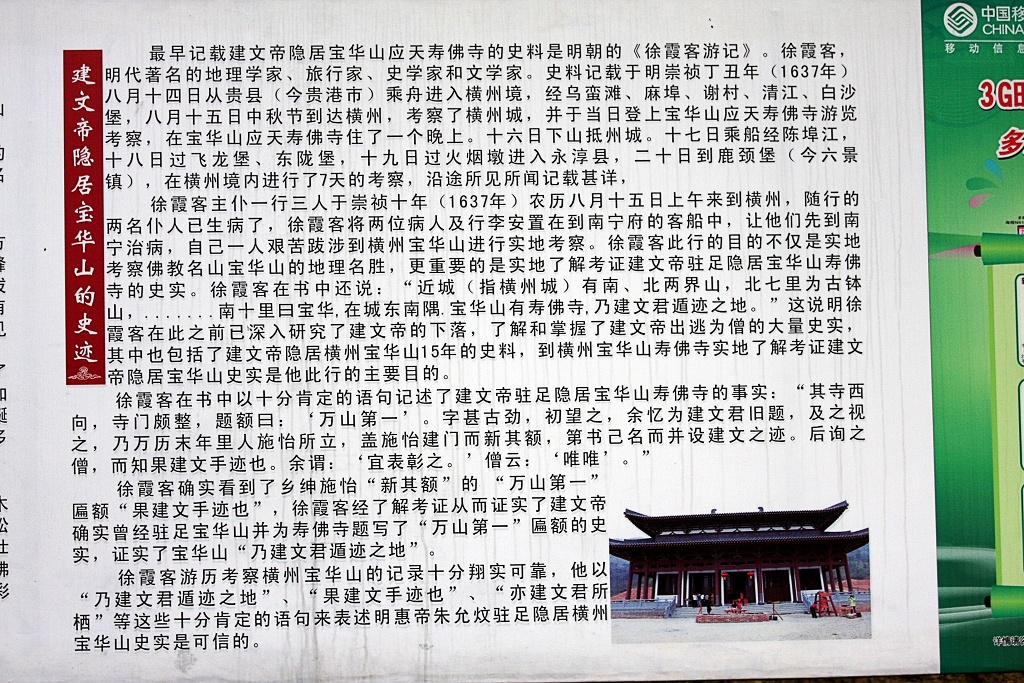 建文帝隐居宝华山的史迹
最早记载建文帝隐居宝华山应天寿佛寺的史料是明朝的《徐霞客游记》。徐霞客，
明代著名的地理学家、旅行家、史学家和文学家。史料记载于明崇祯丁丑年（1637年）
八月十四日从贵县（今贵港市）乘舟进入横州境，经乌蛮滩、麻埠、谢村、清江、白沙
堡，八月十五日中秋节到达横州，考察了横州城，并于当日登上宝华山应天寿佛寺游览
考察，在宝华山应天寿佛寺住了一个晚上。十六日下山抵州城。十七日乘船经陈埠江，
十八日过飞龙堡、东陇堡，十九日过火烟墩进入永淳县，二十日到鹿颈堡（今六景
镇），在横州境内进行了7天的考察，沿途所见所闻记载甚详，
徐霞客主仆一行三人于崇祯十年（1637年）农历八月十五日上午来到横州，随行的
两名仆人已生病了，徐霞客将两位病人及行李安置在到南宁府的客船中，让他们先到南
宁治病，自己一人艰苦跋涉到横州宝华山进行实地考察。徐霞客此行的目的不仅是实地
考察佛教名山宝华山的地理名胜，更重要的是实地了解考证建文帝驻足隐居宝华山寿佛
寺的史实。徐霞客在书中还说：“近城（指横州城）有南、北两界山，北七里为古钵
山，........南十里曰宝华,在城东南隅.宝华山有寿佛寺,乃建文君遁迹之地。”这说明徐
霞客在此之前已深入研究了建文帝的下落，了解和掌握了建文帝出逃为僧的大量史实，
其中也包括了建文帝隐居横州宝华山15年的史料，到横州宝华山寿佛寺实地了解考证建文
帝隐居宝华山史实是他此行的主要目的。
徐霞客在书中以十分肯定的语句记述了建文帝驻足隐居宝华山寿佛寺的事实：“其寺西
向，寺门颇整，题额曰：‘万山第一’。字甚古劲，初望之，余忆为建文君旧题，及之视
之，乃万历末年里人施怡所立，盖施怡建门而新其额，第书己名而并设建文之迹。后询之
僧，而知果建文手迹也。余谓：‘宜表彰之。’僧云：‘唯唯’。”
徐霞客确实看到了乡绅施怡“新其额”的“万山第一”
匾额“果建文手迹也”，徐霞客经了解考证从而证实了建文帝
确实曾经驻足宝华山并为寿佛寺题写了“万山第一”匾额的史
实，证实了宝华山“乃建文君遁迹之地”。
徐霞客游历考察横州宝华山的记录十分翔实可靠，他以
“乃建文君遁迹之地”、“果建文手迹也”、“亦建文君所
栖”等这些十分肯定的语句来表述明惠帝朱允炆驻足隐居横州
宝华山史实是可信的。
中国移
CHINA
移动信息
3G
多